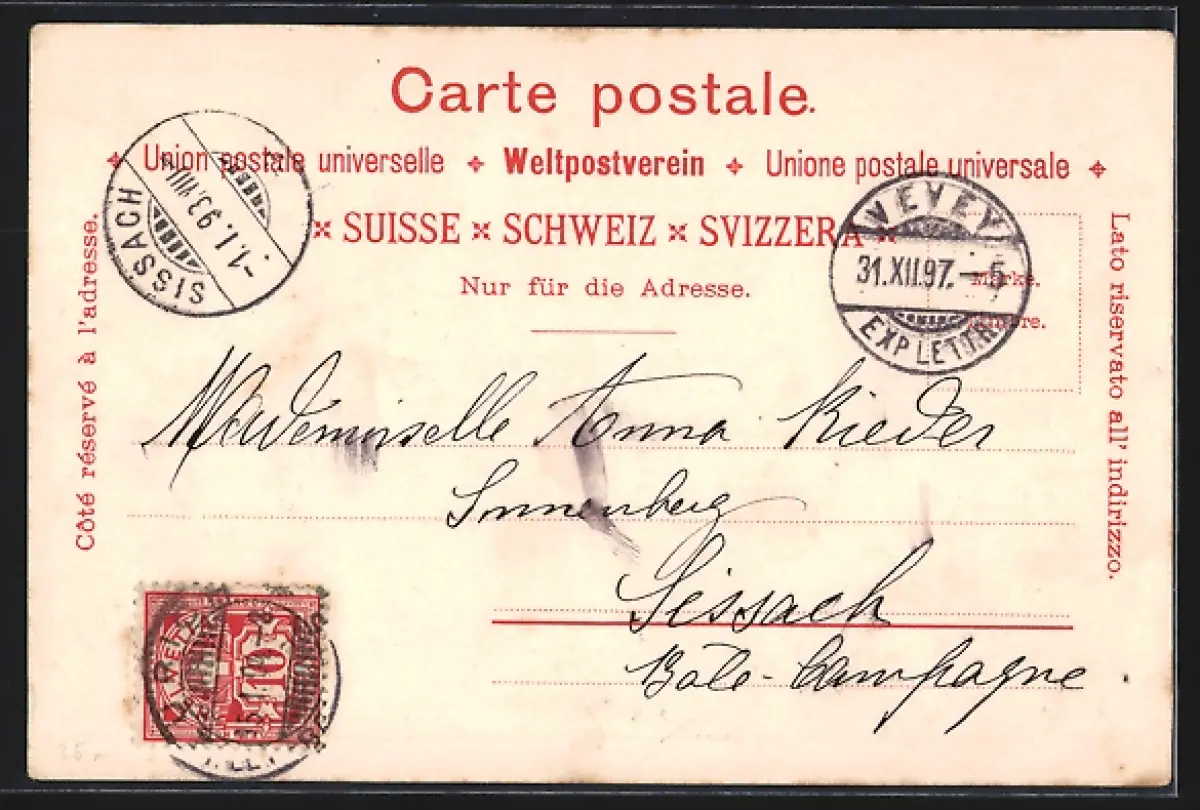 Carte postale.
Union postale universelle Weltpostverein Unione postale universale
SUISSE SCHWEIZ SVIZZERA
Nur für die Adresse.
Côté réservé à l'adresse.
Lato riservato all' indirizzo.
SISSACH
-1.1.93.VIII
VEVEY
31.XII.97.-5
EXP. LETTR.
Marke.
Mademoiselle Anna Rieder
Sonnenberg
Sissach
Bâle-Campagne
HELVETIA
10
25.-